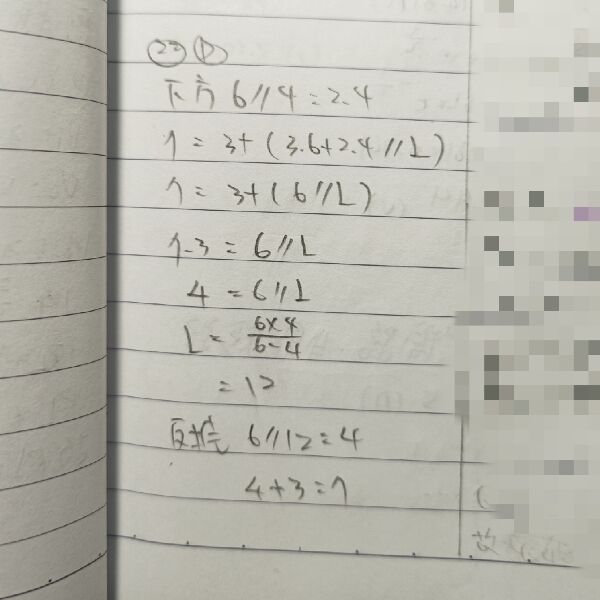 ㉒ D
下方 6//4=2.4
7=3+(3.6+2.4//L)
7=3+(6//L)
7-3=6//L
4=6//L
L=\frac{6×4}{6-4}
=12
反推 6//12=4
4+3=7
故